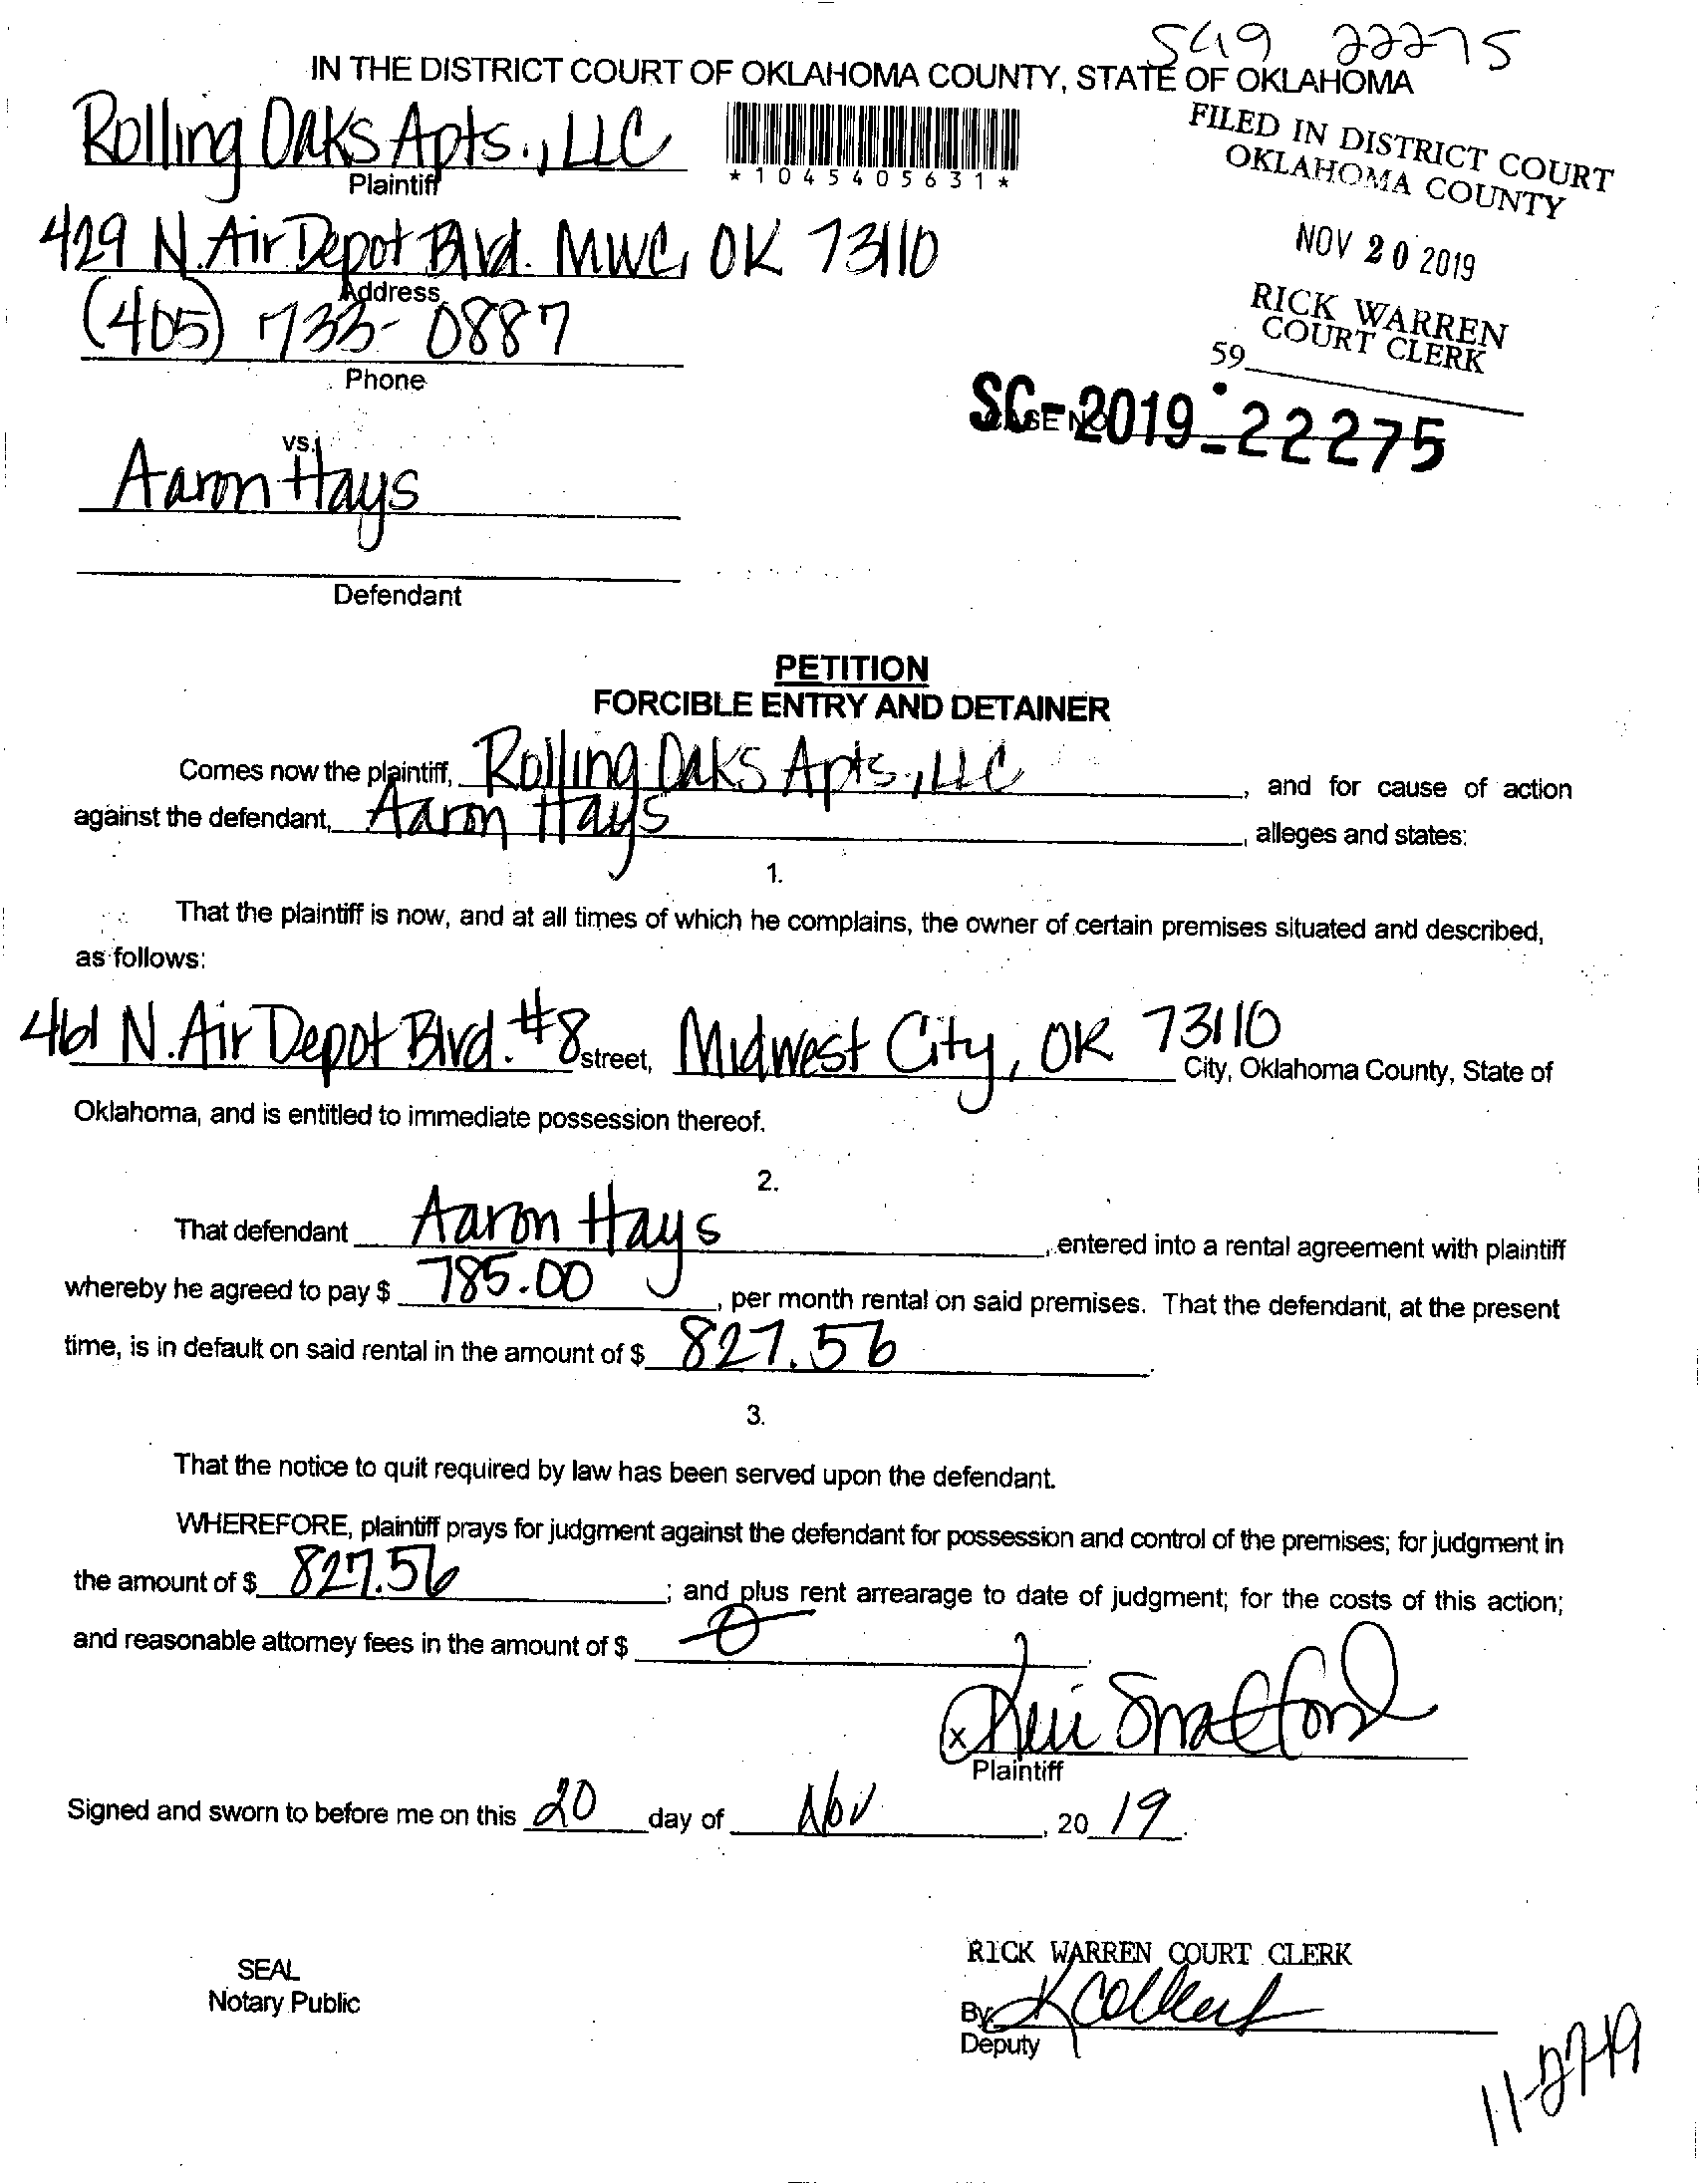 SC19 22275
IN THE DISTRICT COURT OF OKLAHOMA COUNTY, STATE OF OKLAHOMA
Rolling Oaks Apts., LLC
Plaintiff
*1045405631*
FILED IN DISTRICT COURT
OKLAHOMA COUNTY
NOV 20 2019
RICK WARREN
COURT CLERK
59
429 N. Air Depot Blvd. MWC, OK 73110
Address
(405) 733-0887
Phone
CASE NO
SC-2019-22275
vs.
Aaron Hays
Defendant
PETITION
FORCIBLE ENTRY AND DETAINER
Comes now the plaintiff, Rolling Oaks Apts., LLC, and for cause of action
against the defendant, Aaron Hays, alleges and states:
1.
That the plaintiff is now, and at all times of which he complains, the owner of certain premises situated and described,
as follows:
461 N. Air Depot Blvd. #8 street, Midwest City, OK 73110 City, Oklahoma County, State of
Oklahoma, and is entitled to immediate possession thereof.
2.
That defendant Aaron Hays, entered into a rental agreement with plaintiff
whereby he agreed to pay $ 785.00, per month rental on said premises. That the defendant, at the present
time, is in default on said rental in the amount of $ 827.56.
3.
That the notice to quit required by law has been served upon the defendant.
WHEREFORE, plaintiff prays for judgment against the defendant for possession and control of the premises; for judgment in
the amount of $ 827.56; and plus rent arrearage to date of judgment; for the costs of this action;
and reasonable attorney fees in the amount of $ 0.
x
Plaintiff
Signed and sworn to before me on this 20 day of Nov, 20 19.
SEAL
Notary Public
RICK WARREN COURT CLERK
By
Deputy
11-27-19